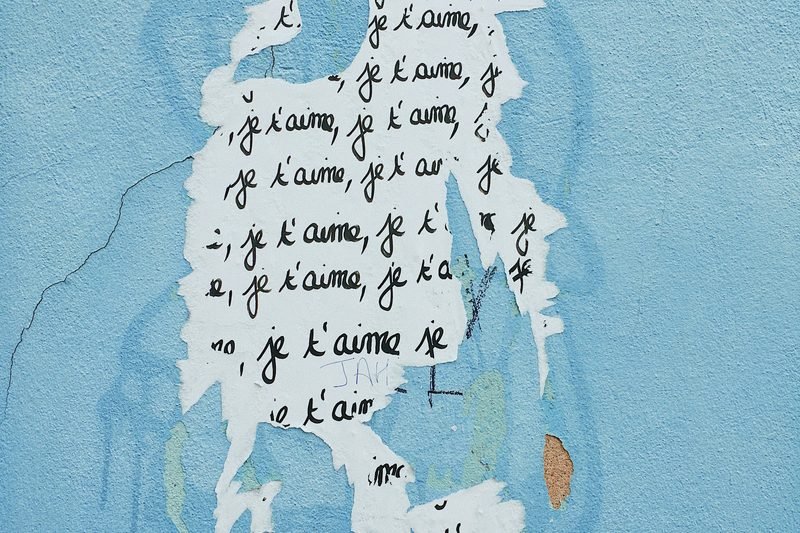 t'
je t'aime,
, je t'aime, je
, je t'aime, je t'aime,
, je t'aime, je t'ai je
, je t'aime, je t' je
e, je t'aime, je t'a je
, je t'aime je
JAH
t'aim